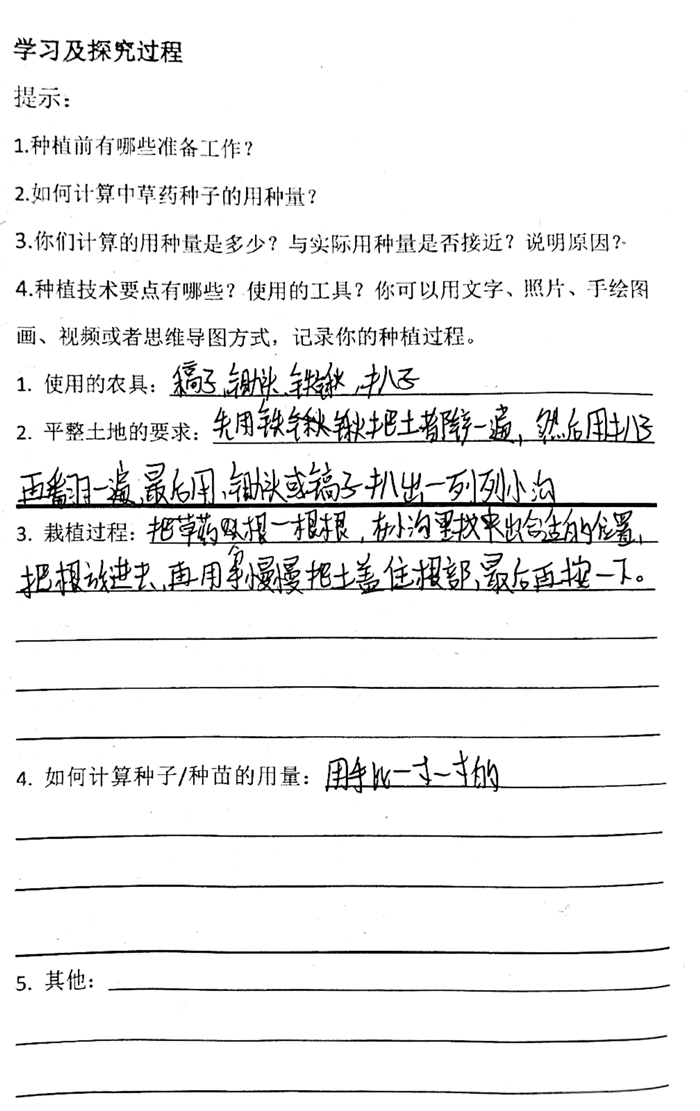 学习及探究过程
提示：
1.种植前有哪些准备工作？
2.如何计算中草药种子的用种量？
3.你们计算的用种量是多少？与实际用种量是否接近？说明原因？
4.种植技术要点有哪些？使用的工具？你可以用文字、照片、手绘图
画、视频或者思维导图方式，记录你的种植过程。
1. 使用的农具：镐子、锄头、铁锹、扒子
2. 平整土地的要求：先用铁锹锹把土都一遍，然后用扒子
再翻一遍，最后用锄头或镐子扒出一列列小沟
3. 栽植过程：把草药根一根根，在小沟里找出合适的位置，
把根放进去，再用手慢慢把土盖住根部，最后再按一下。
4. 如何计算种子/种苗的用量：用手比一寸一寸的
5. 其他：